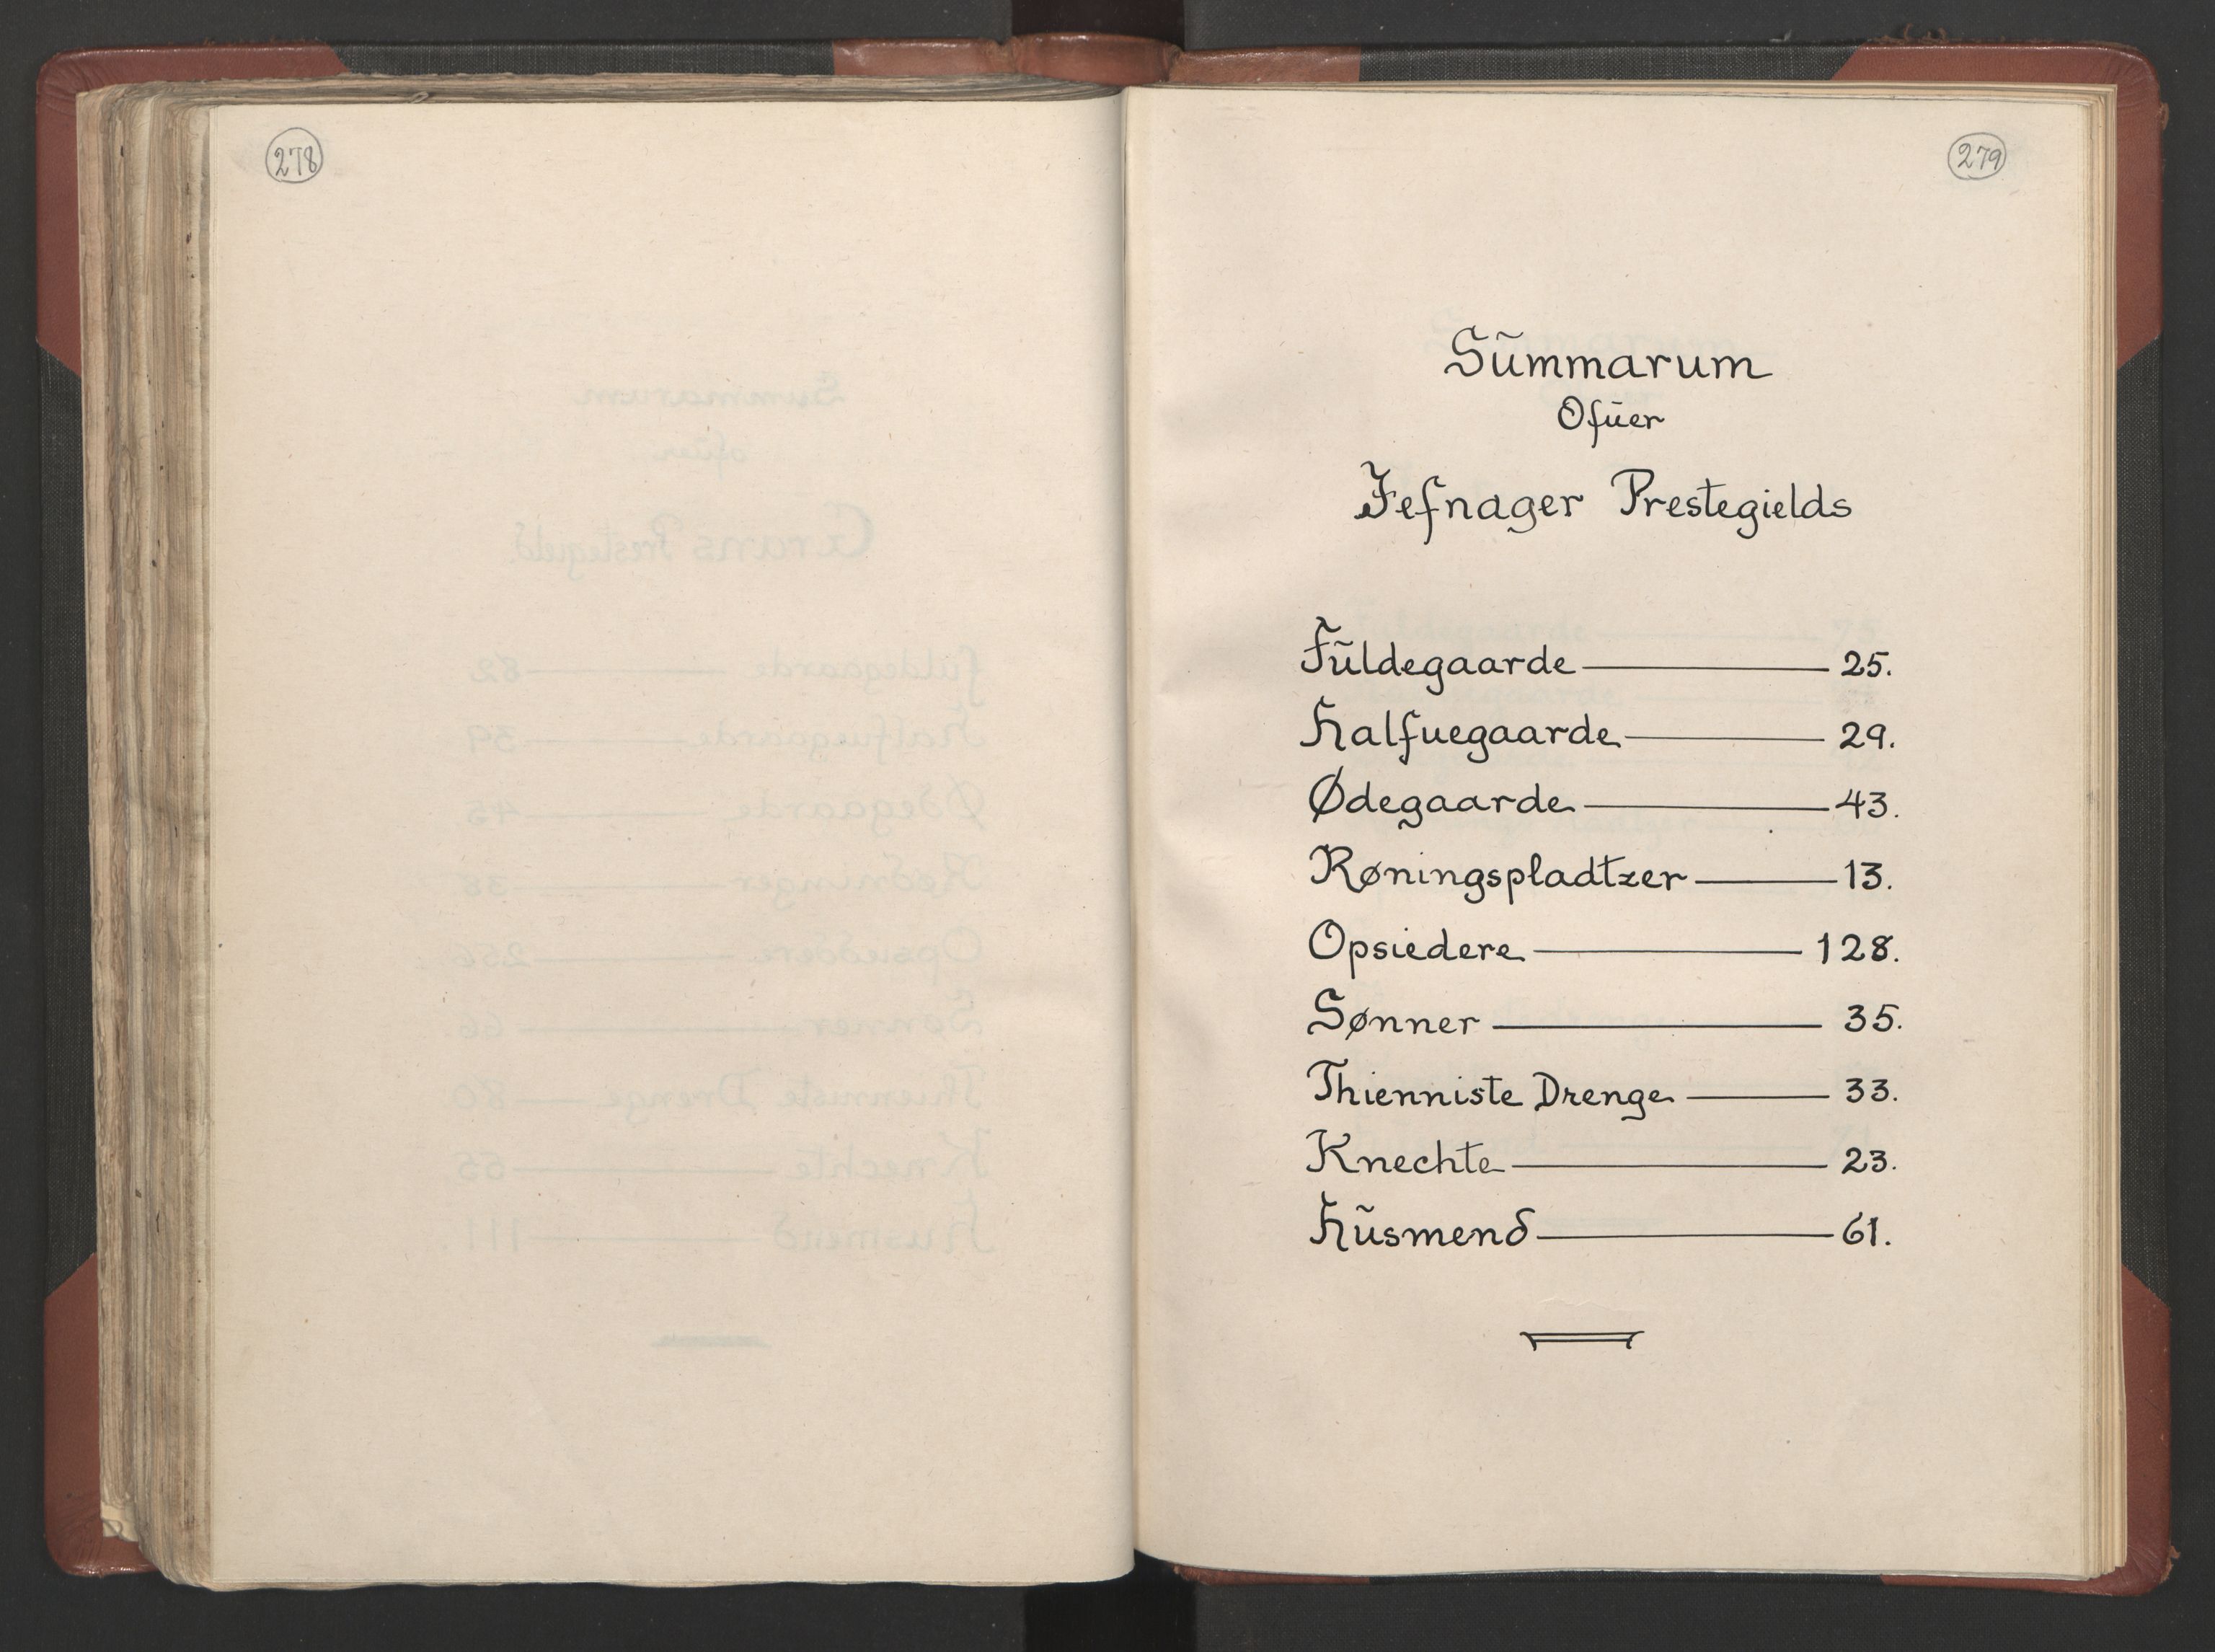 278
279
Sũmmarum
Ofũer
Jefnager Prestegields
Fũldegaarde 25.
Halfuegaarde 29.
Ødegaarde 43.
Røningspladtzer 13.
Opsiedere 128.
Sønner 35.
Thienniste Drenge 33.
Knechte 23.
Hũsmend 61.